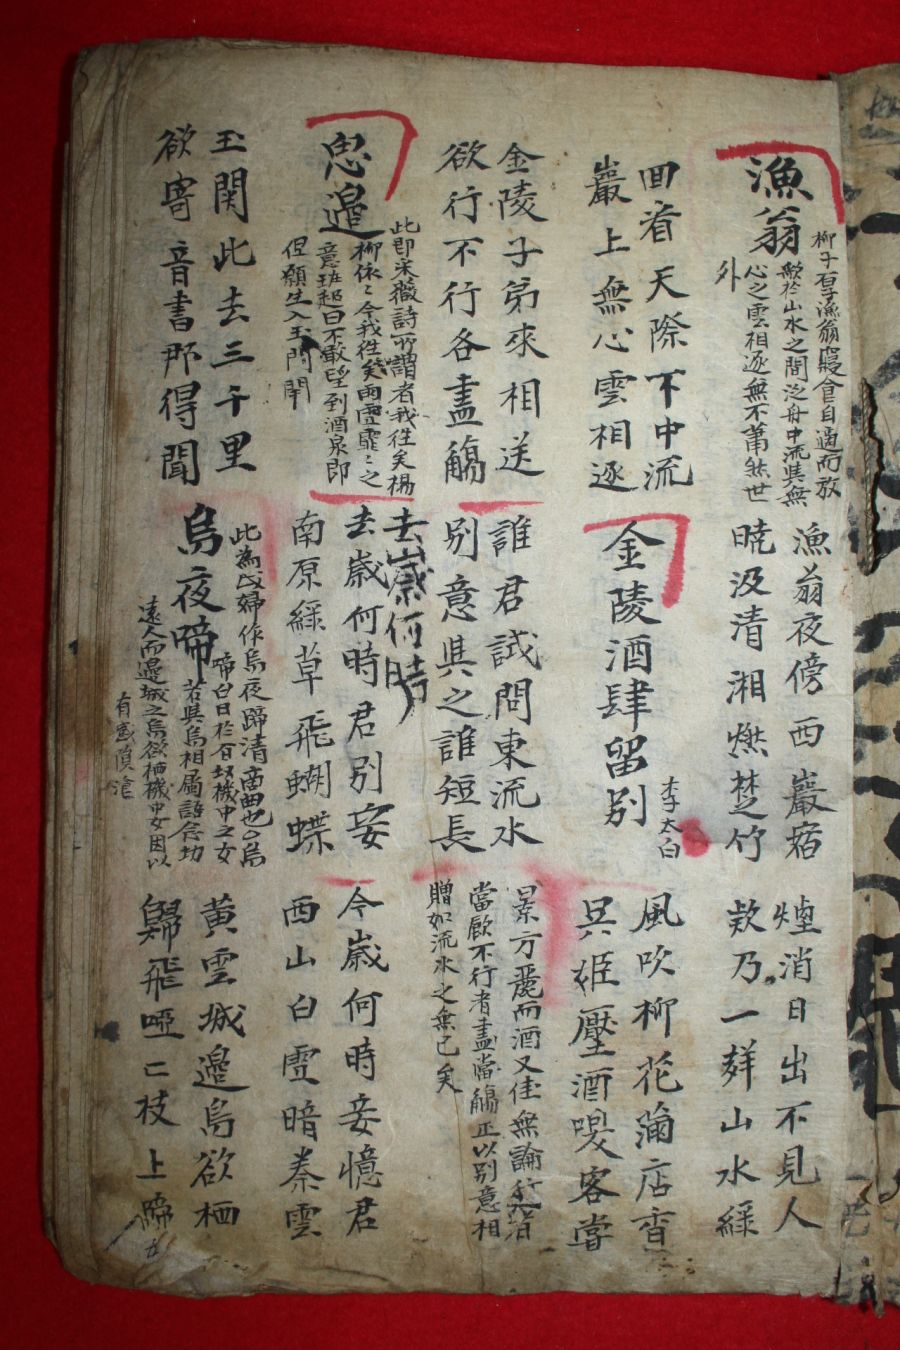 漁翁
柳子厚漁翁寢食自適而放
歟於山水之間泛舟中流與無
心之雲相逐無不蕭然世
外
漁翁夜傍西巖宿
曉汲清湘燃楚竹
煙消日出不見人
欸乃一聲山水綠
回看天際下中流
巖上無心雲相逐
金陵酒肆留別
李太白
風吹柳花滿店香
吳姬壓酒喚客嘗
金陵子弟來相送
欲行不行各盡觴
請君試問東流水
別意與之誰短長
景方麗而酒又佳無論行者
當歐不行者盡當觴正以別意相
贈如流水之無已矣
思邊
此即采薇詩所謂昔我往矣楊
柳依〻今我往矣雨雪霏〻之
意班超曰不敢望到酒泉郡
但願生入玉門関
去歲何時
去歲何時君別妾
南原綠草飛蝴蝶
今歲何時妾憶君
西山白雪暗秦雲
玉関此去三千里
欲寄音書那得聞
烏夜啼
此為戍婦作烏夜蹄清商曲也〇烏
啼白日於機中之女
若與烏相屬語念切
遠人而邊城之烏欲栖機中女因以
有感
黃雲城邊烏欲栖
歸飛啞〻枝上啼